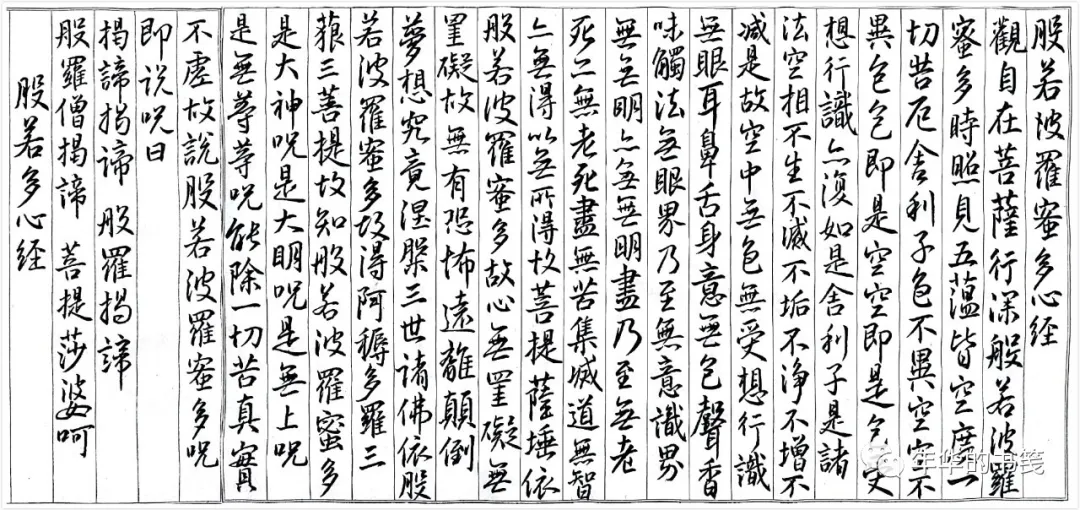 般若波羅蜜多心経
觀自在菩薩行深般若波羅
蜜多時照見五蕴皆空度一
切苦厄舍利子色不異空空不
異色色即是空空即是色受
想行識亦復如是舍利子是諸
法空相不生不滅不垢不净不增不
減是故空中無色無受想行識
無眼耳鼻舌身意無色聲香
味觸法無眼界乃至無意識界
無無明亦無無明盡乃至無老
死亦無老死盡無苦集滅道無智
亦無得以無所得故菩提薩埵依
般若波羅蜜多故心無罣礙無
罣礙故無有恐怖遠離顛倒
夢想究竟涅槃三世諸佛依般
若波羅蜜多故得阿耨多羅三
藐三菩提故知般若波羅蜜多
是大神呪是大明呪是無上呪
是無等等呪能除一切苦真實
不虛故說般若波羅蜜多呪
即说呪曰
揭諦揭諦 般羅揭諦
般羅僧揭諦 菩提莎婆呵
般若多心経
年华的书笺